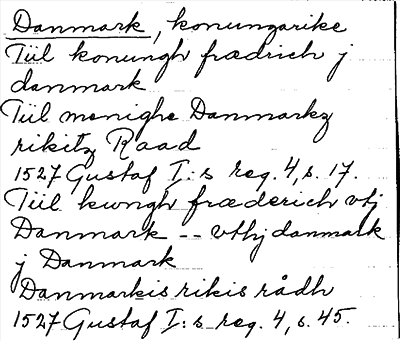 Danmark, konungarike
Tiil konungh frædrich j
danmark
Tiil menighe Danmarkz
rikitz Raad
1527 Gustaf I:s reg. 4, s. 17.
Tiil kwngh fræderich vtj
Danmark -- vthj danmark
j Danmark
Danmarkis rikis rådh
1527 Gustaf I:s reg. 4, s. 45.